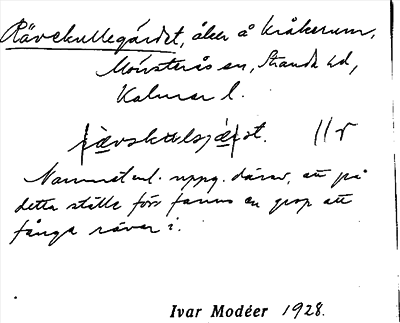 Rävekullegärdet, åker å Kråkerum,
Mönsterås sn, Stranda hd,
Kalmar l.
Namnet enl. uppg. därav, att på
detta ställe förr fanns en grop att
fånga rävar i.
Ivar Modéer 1928.